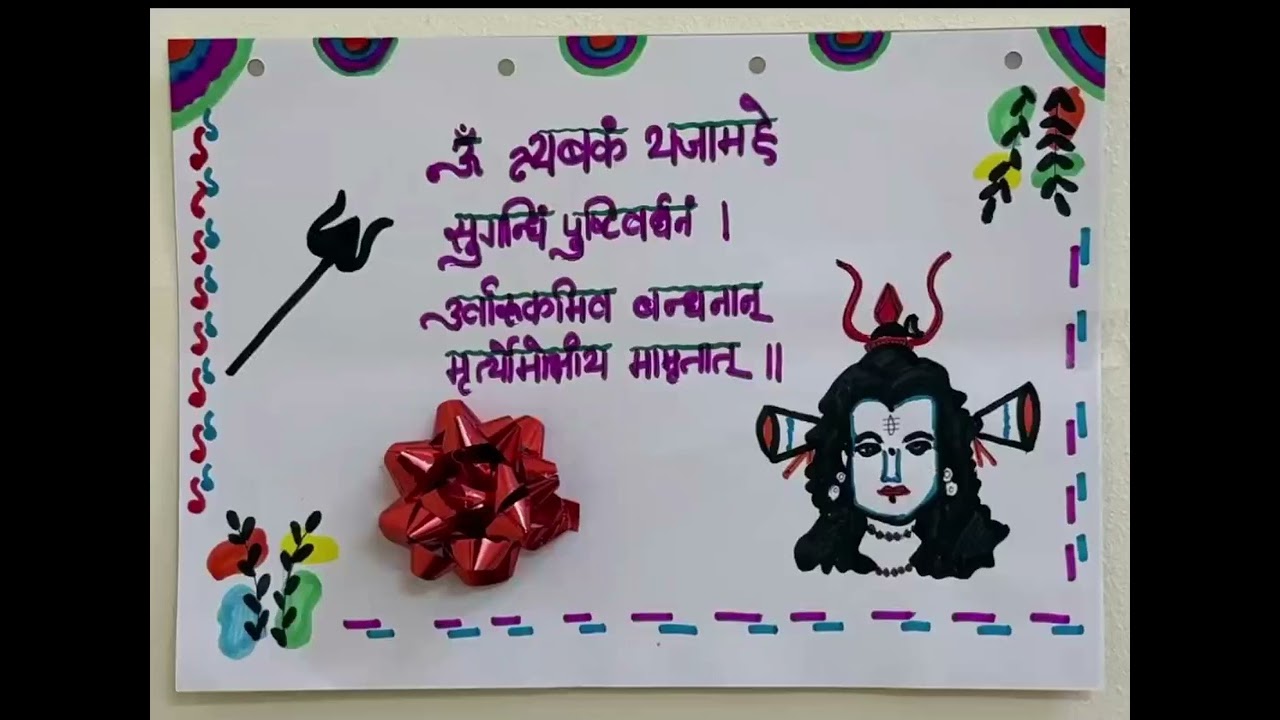 ॐ त्र्यबकं यजामहे
सुगन्धिं पुष्टिवर्धनं ।
उर्वारूकमिव बन्धनान्
मृर्त्योमोक्षीय मामृतात् ॥